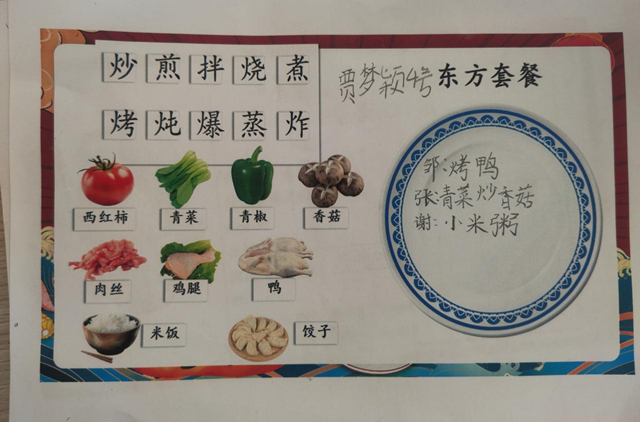 炒 煎 拌 烧 煮
烤 炖 爆 蒸 炸
贾梦颖4号 东方套餐
西红柿 青菜 青椒 香菇
肉丝 鸡腿 鸭
米饭 饺子
邹:烤鸭
张:青菜炒香菇
谢:小米粥